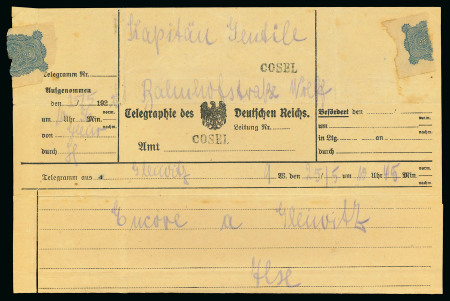 Kapitän Gentile
COSEL
Telegramm Nr.
Bahnhofstraße Wolff
Aufgenommen
den 192
um Uhr Min. vorm. nachm.
von
durch
Telegraphie des Deutschen Reichs.
Leitung Nr.
COSEL
Amt
Befördert den
um Uhr Min. vorm. nachm.
in Ltg. an
durch
Telegramm aus Gleiwitz 9 W. den 25/5 um 10 Uhr 45 Min. vorm. nachm.
Encore a Gleiwitz
Ilse